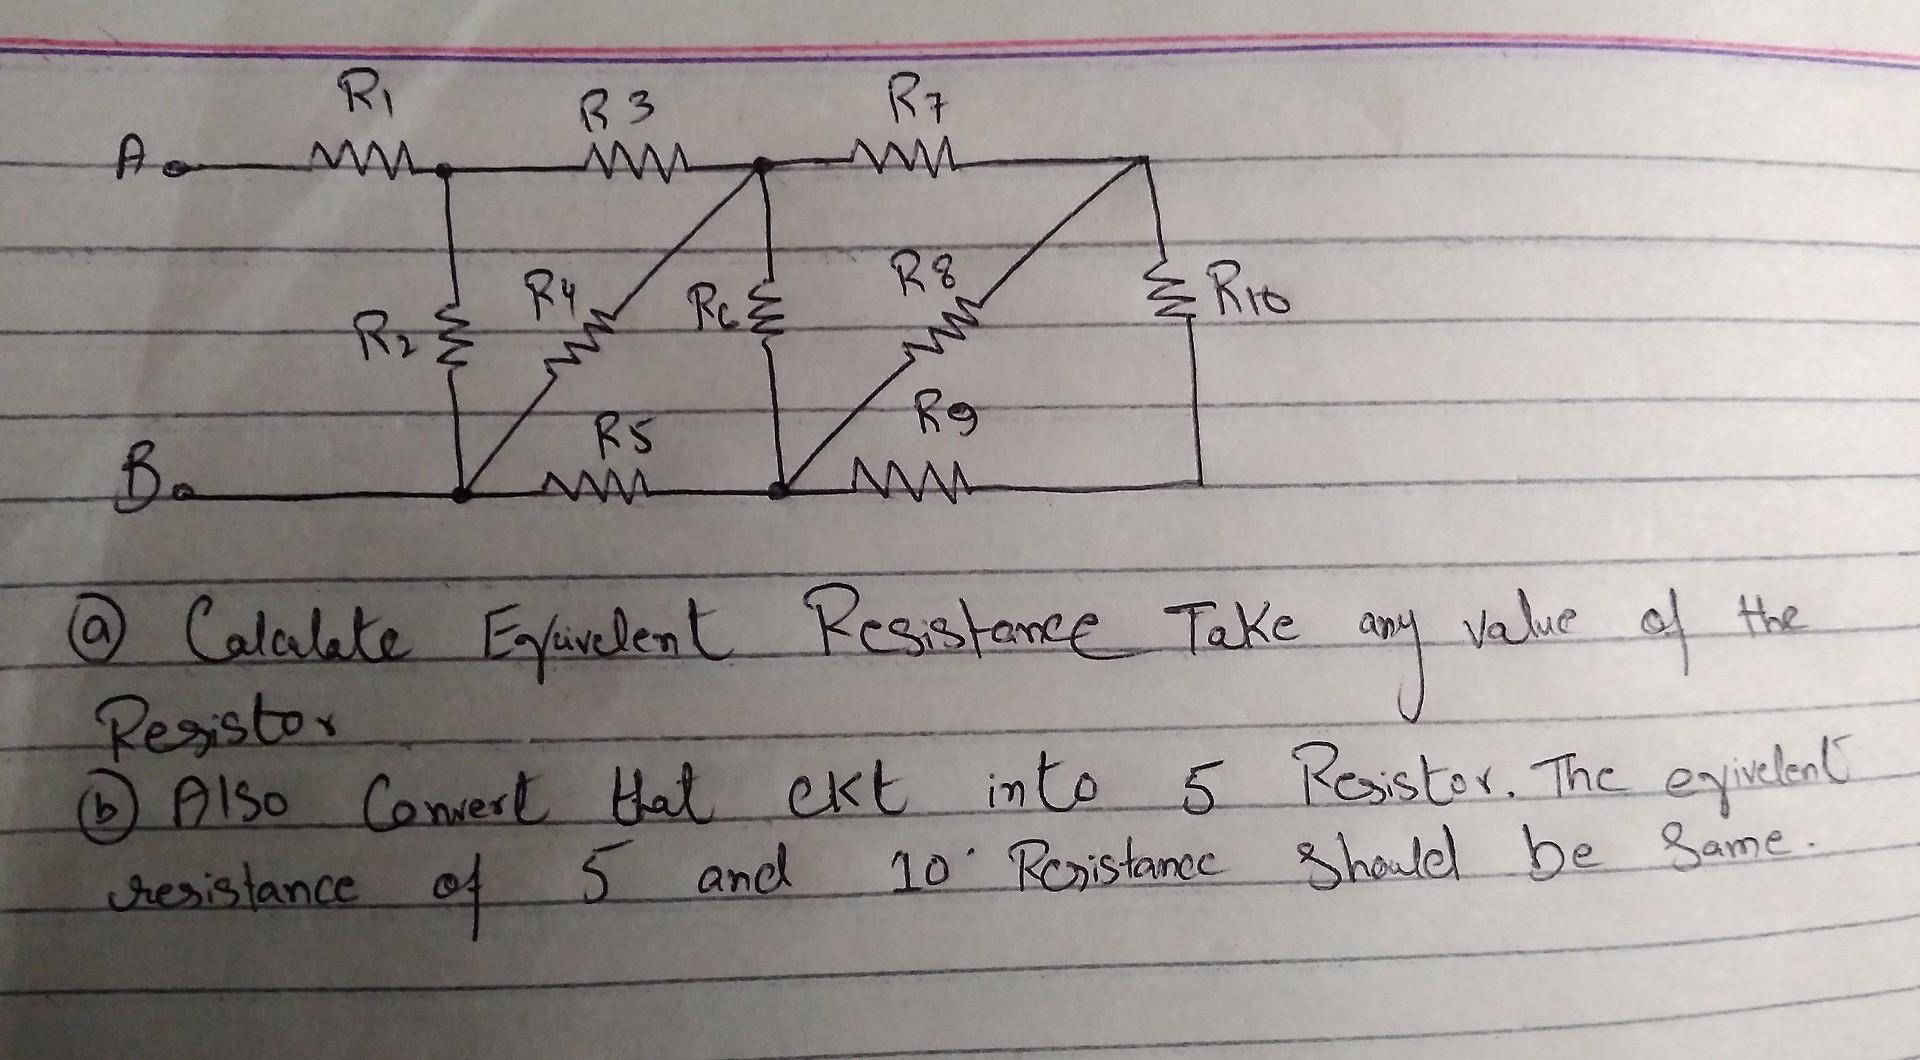 R1 R3 R7
A
R2 R4 R6 R8 R10
R5 R9
B
(a) Calculate Eqivelent Resistance Take any value of the
Resistor
(b) Also Convert that ckt into 5 Resistor. The eqivelent
resistance of 5 and 10 Resistance Should be Same.